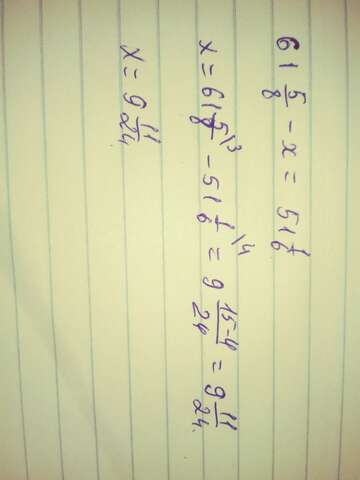 61 5/8 - x = 51 1/6
x = 61 5/8 \3 - 51 1/6 \4 = 9 15-4/24 = 9 11/24.
x = 9 11/24